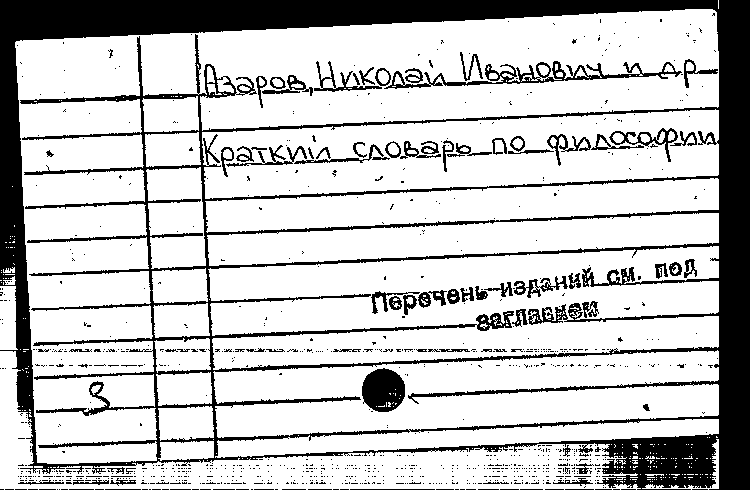 Азаров, Николай Иванович и др
Краткий словарь по философии
Перечень изданий см. под
заглавием